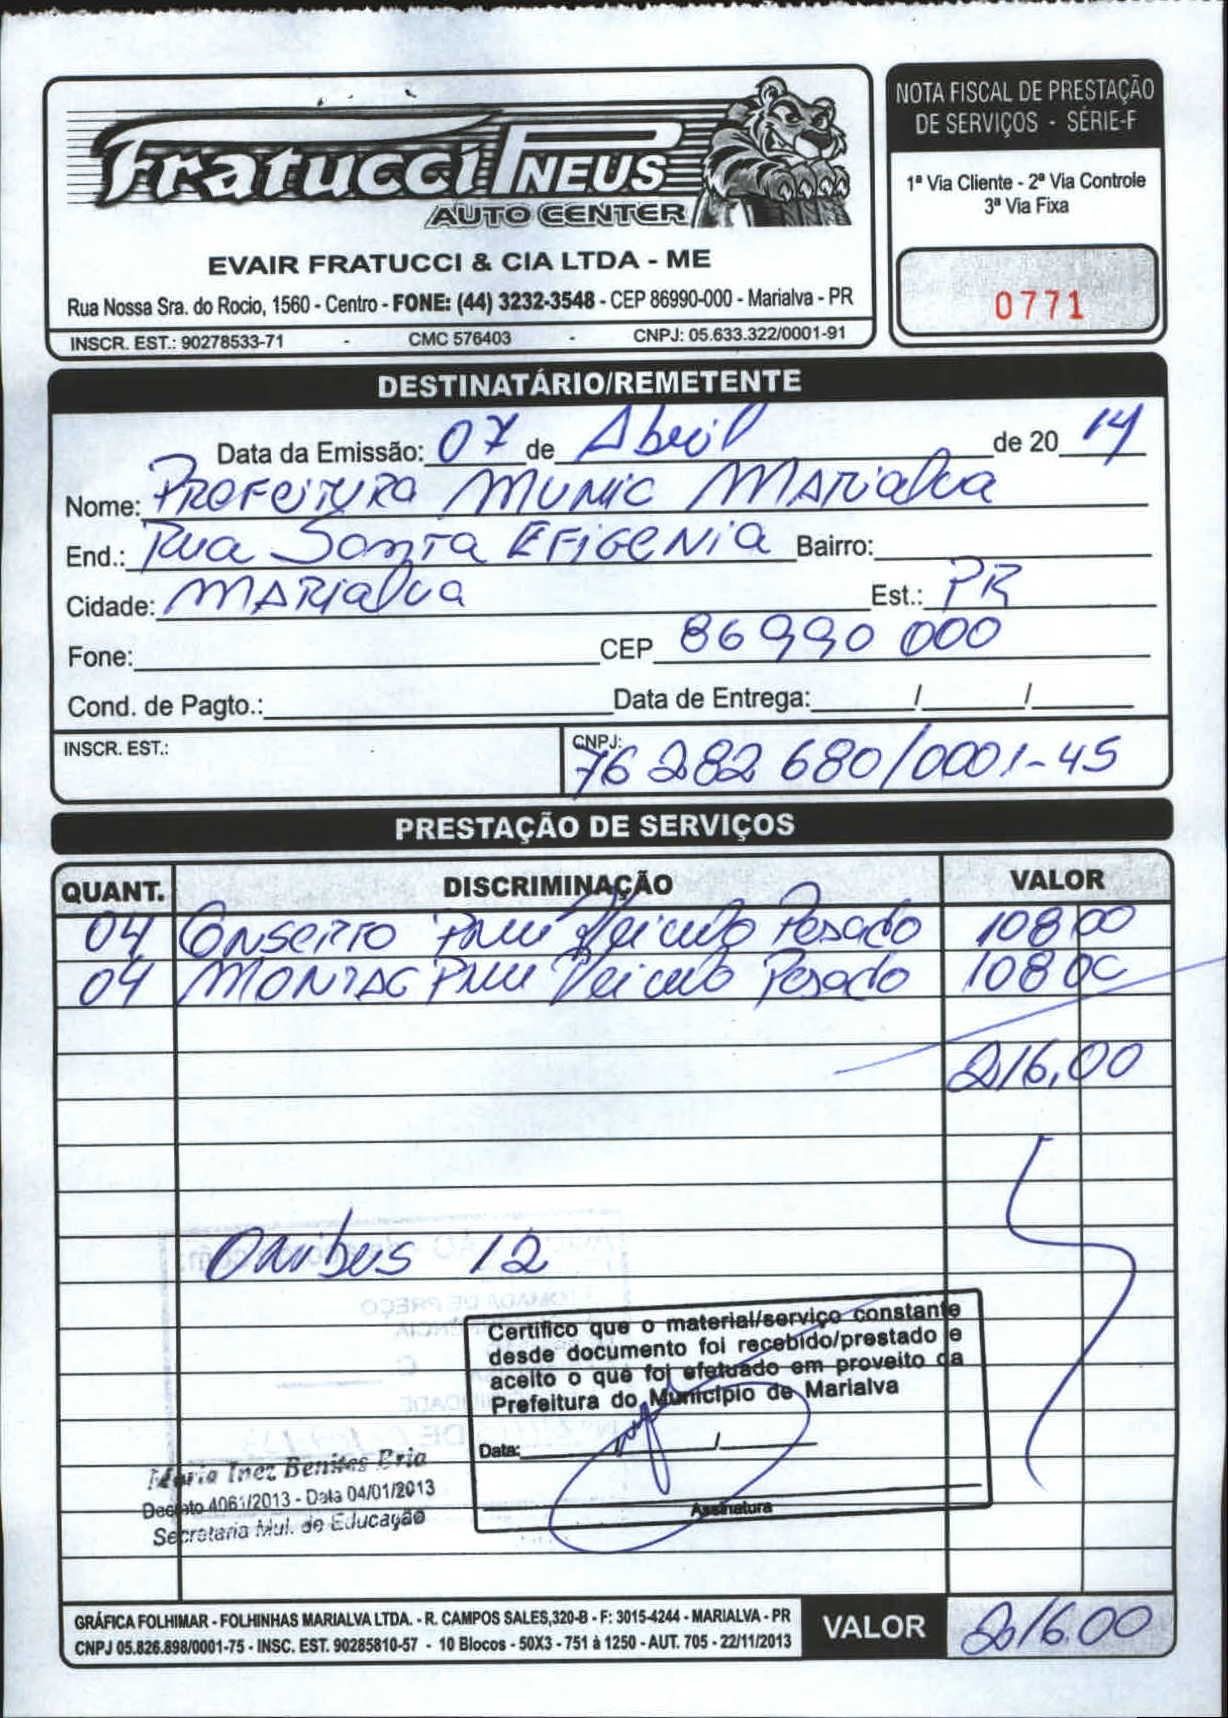 Fratucci PNEUS
AUTO CENTER
EVAIR FRATUCCI & CIA LTDA - ME
Rua Nossa Sra. do Rocio, 1560 - Centro - FONE: (44) 3232-3548 - CEP 86990-000 - Marialva - PR
INSCR. EST.: 90278533-71 - CMC 576403 - CNPJ: 05.633.322/0001-91
NOTA FISCAL DE PRESTAÇÃO
DE SERVIÇOS - SÉRIE-F
1ª Via Cliente - 2ª Via Controle
3ª Via Fixa
0771
DESTINATÁRIO/REMETENTE
Data da Emissão: 07 de Abril de 20 14
Nome: PREFEITURA MUNIC MARIALVA
End.: Rua Santa EFIGENIA Bairro:
Cidade: MARIALVA Est.: PR
Fone: CEP 86990 000
Cond. de Pagto.: Data de Entrega: / /
INSCR. EST.: CNPJ: 76 282 680/0001-45
PRESTAÇÃO DE SERVIÇOS
QUANT. DISCRIMINAÇÃO VALOR
04 Conserto Pneu Veiculo Pesado 108 00
04 MONTAG Pneu Veiculo Pesado 108 00
216,00
Onibus 12
Certifico que o material/serviço constante
desde documento foi recebido/prestado e
aceito o que foi efetuado em proveito da
Prefeitura do Município de Marialva
Data: /
Assinatura
Maria Inez Benites Erio
Decreto 4061/2013 - Data 04/01/2013
Secretaria Mul. de Educação
GRÁFICA FOLHIMAR - FOLHINHAS MARIALVA LTDA. - R. CAMPOS SALES,320-B - F: 3015-4244 - MARIALVA - PR
CNPJ 05.826.898/0001-75 - INSC. EST. 90285810-57 - 10 Blocos - 50X3 - 751 à 1250 - AUT. 705 - 22/11/2013
VALOR 216.00